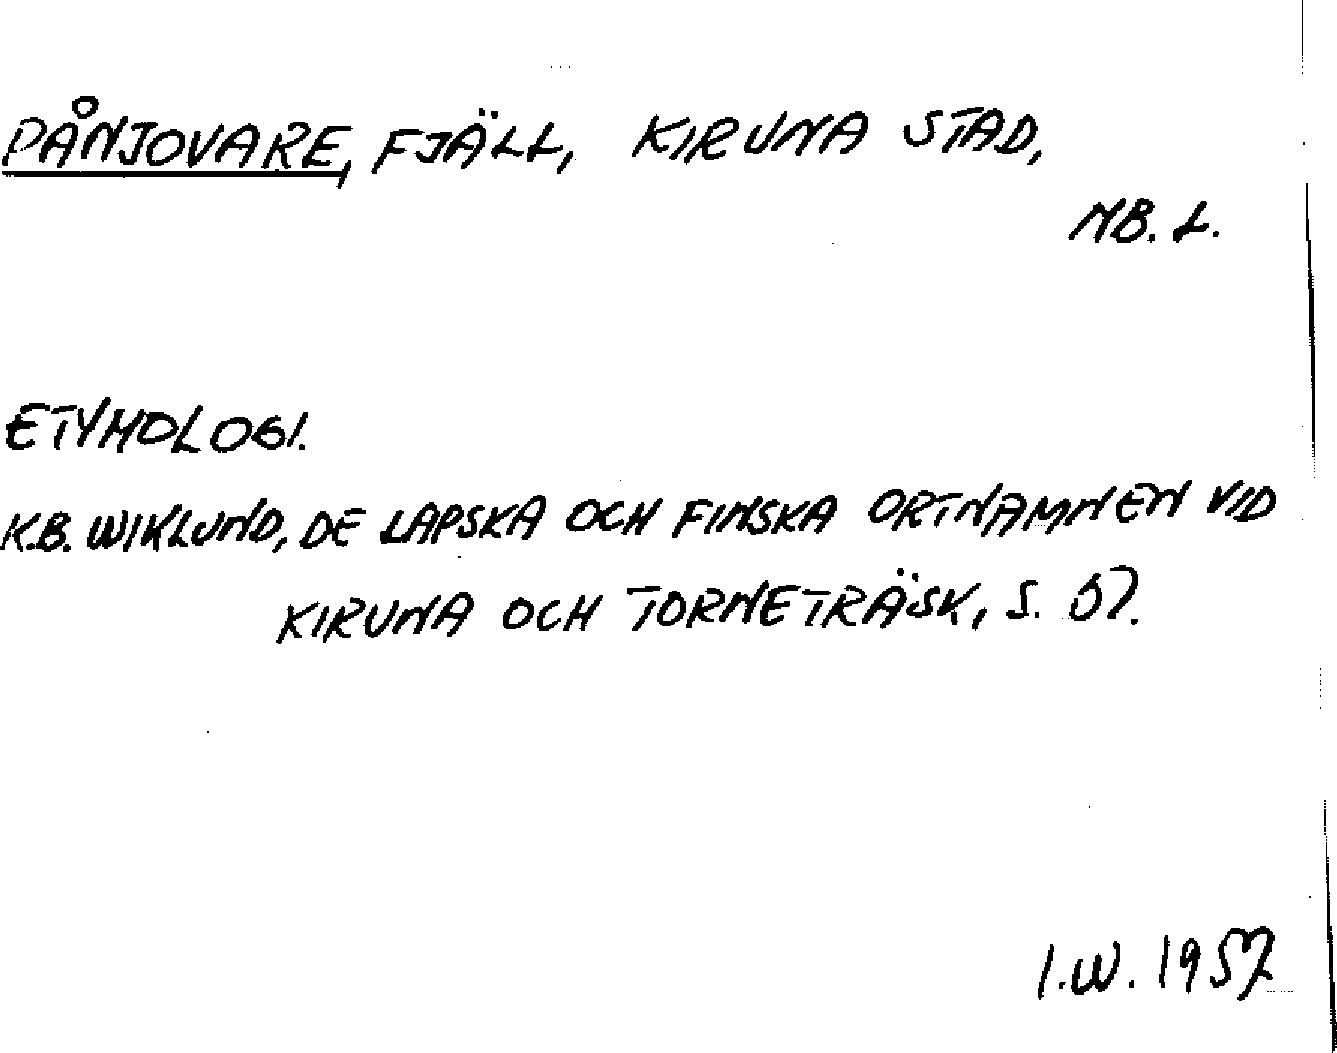 PÅNJOVARE, FJÄLL, KIRUNA STAD,
NB. L.
ETYMOLOGI.
K.B. WIKLUND, DE LAPSKA OCH FINSKA ORTNAMNEN VID
KIRUNA OCH TORNETRÄSK, S. 57.
I.W. 1957